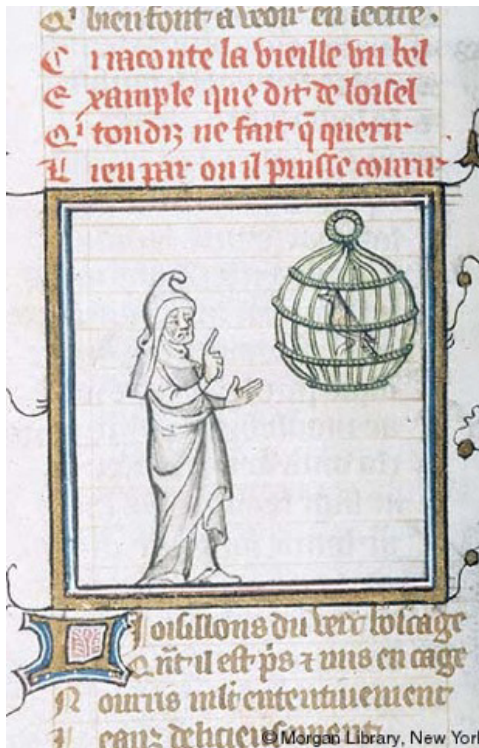 Q' bien font a veoir en lectre.
Ci raconte la vieille un bel
Example que dit de loisel
Qi tondiz ne fait q̄ querir
Lieu par ou il puisse courir
Li oisillons du vert boscage
Qn̄t il est p̄s ⁊ mis en cage
Nourris ml̄t ententivement
Leanz delicieusement
©Morgan Library, New York